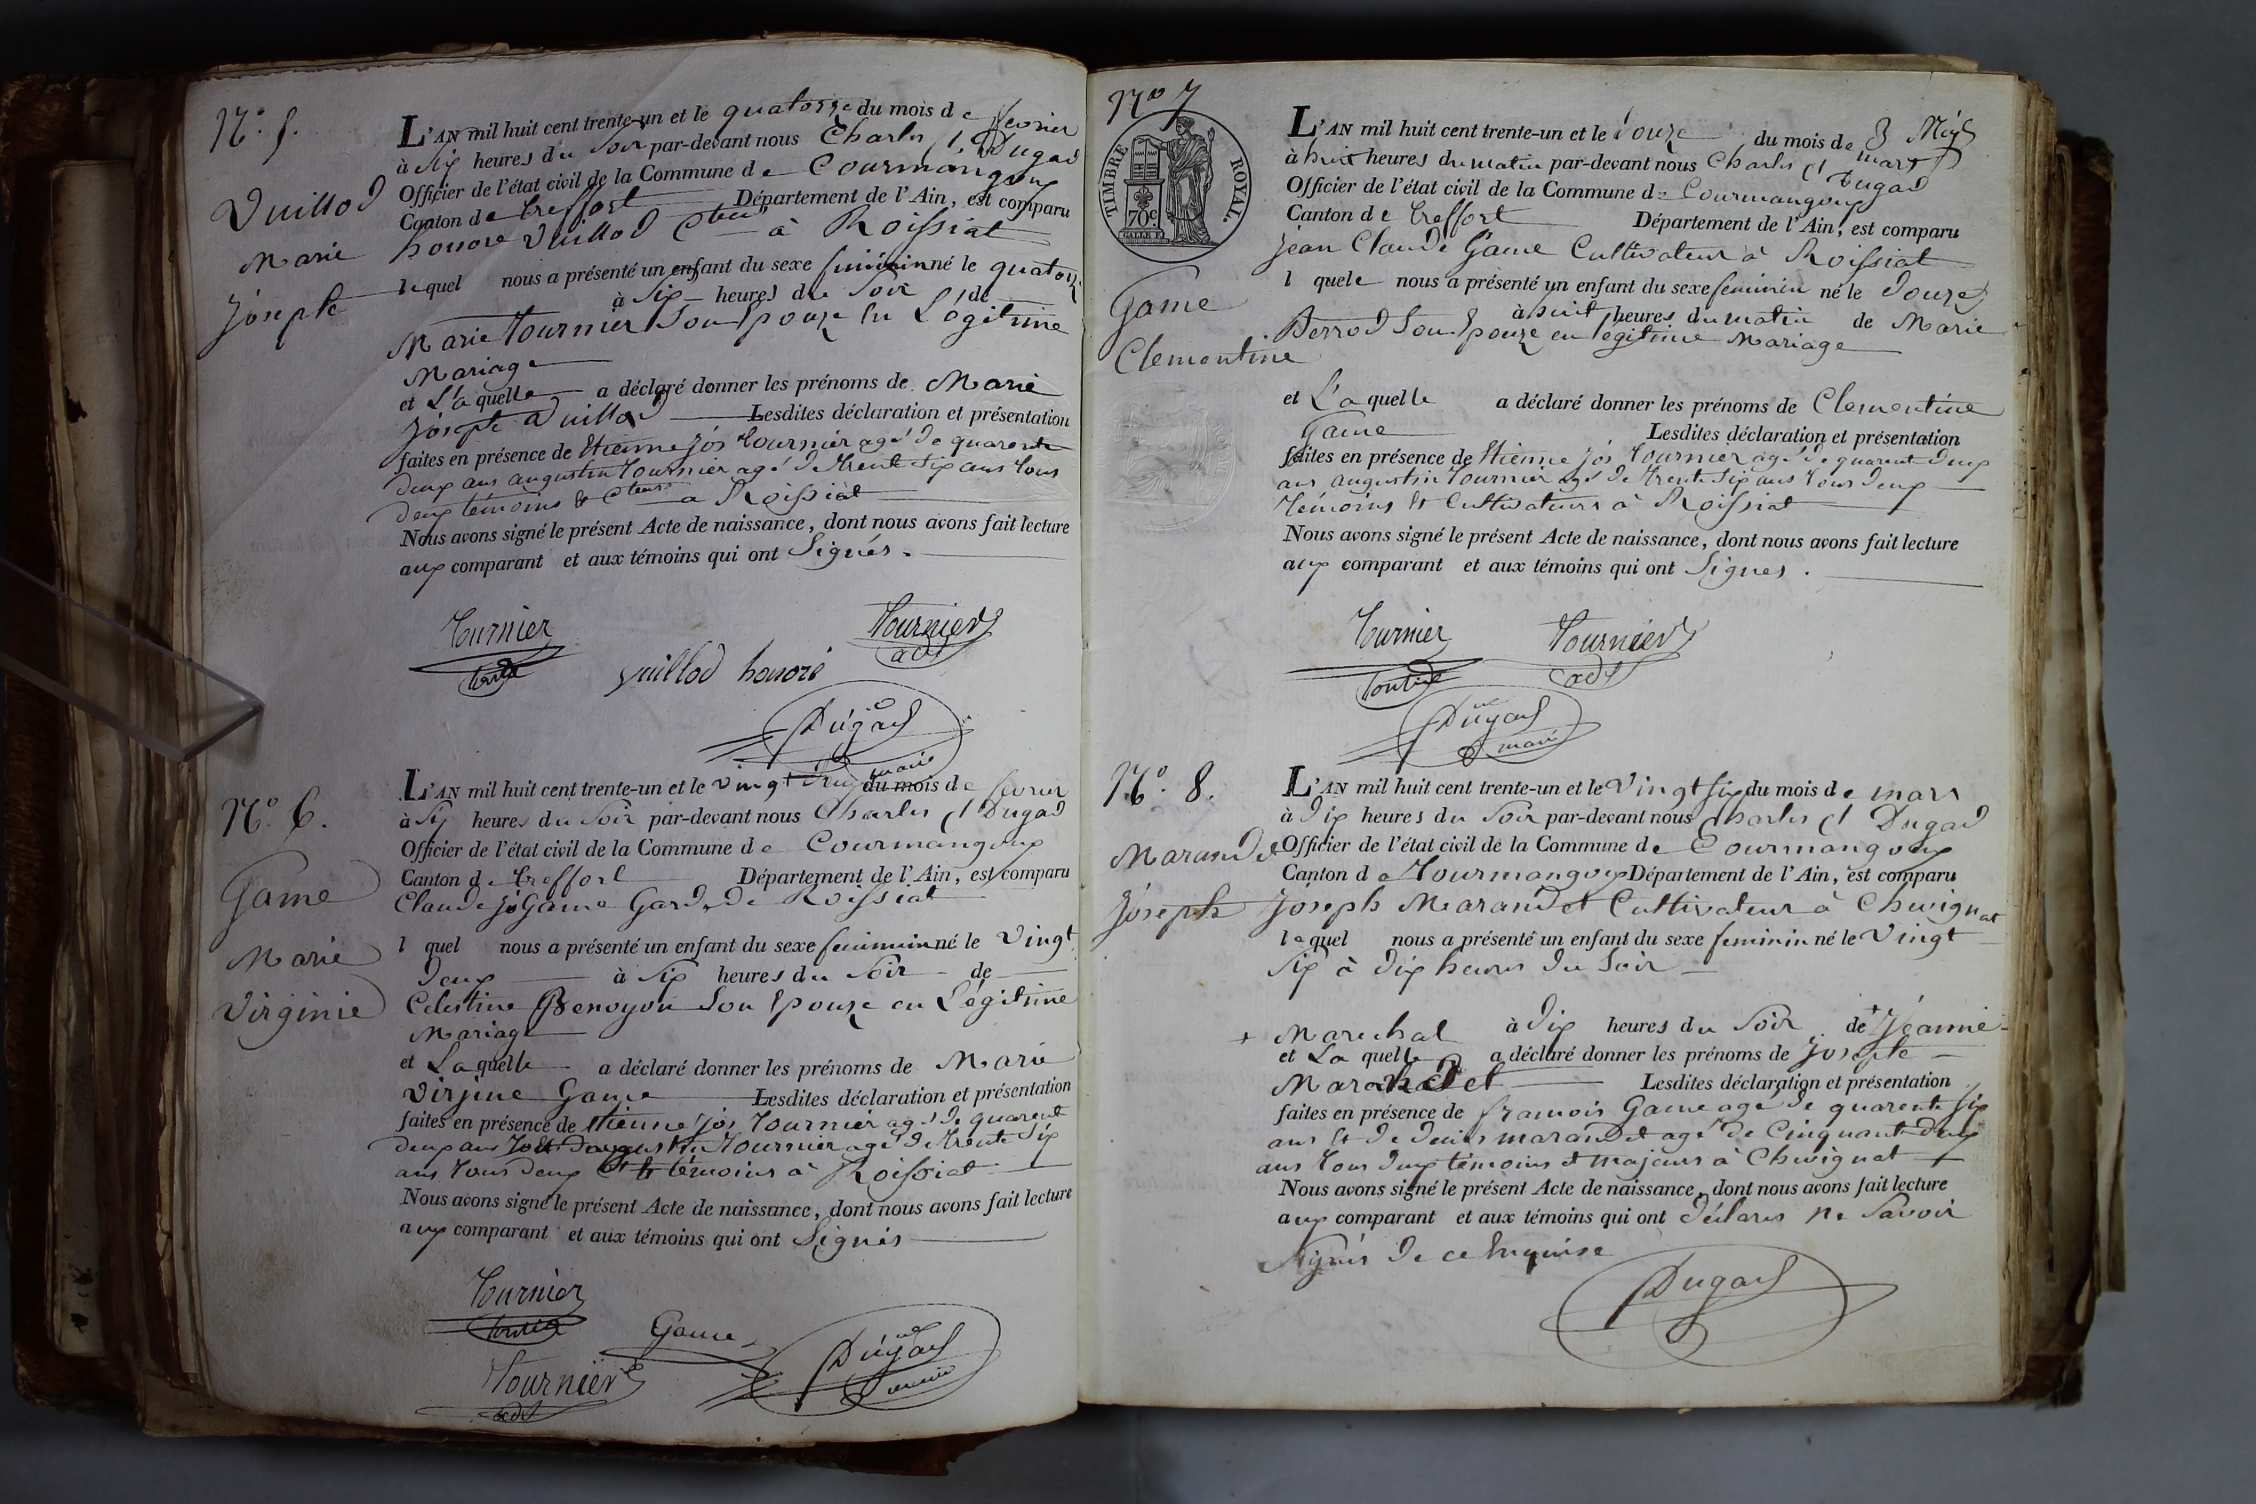 N.° 5.
Vuillod
Marie
Josephe
L'AN mil huit cent trente-un et le quatorze du mois de fevrier
à Six heures du Soir par-devant nous Charles Dugad
Officier de l'état civil de la Commune de Courmangoux
Canton de treffort Département de l'Ain, est comparu
honoré Vuillod Cteur à Roissiat
lequel nous a présenté un enfant du sexe feminin né le quatorze
à Six heures du Soir de
Marie Tournier Son Epouze En Légitime
Mariage
et Laquelle a déclaré donner les prénoms de Marie
Josephe Vuillod Lesdites déclaration et présentation
faites en présence de Etienne jos Tournier agé de quarente
deux ans augustin Tournier agé de trente Six ans tous
deux témoins & Cteurs a Roissiat
Nous avons signé le présent Acte de naissance, dont nous avons fait lecture
aux comparant et aux témoins qui ont Signés.
Tournier
Tournier
adj
vuillod honoré
Dugad
maire
N.° 6.
Game
Marie
Virginie
L'AN mil huit cent trente-un et le vingt deux du mois de fevrier
à Six heures du Soir par-devant nous Charles Dugad
Officier de l'état civil de la Commune de Courmangoux
Canton de treffort Département de l'Ain, est comparu
Claude Jh Game Garde de Roissiat
l quel nous a présenté un enfant du sexe feminin né le Vingt
Deux à Six heures du Soir de
Celestine Benoyon Son Epouze en Légitime
Mariage
et Laquelle a déclaré donner les prénoms de Marie
Virjine Game Lesdites déclaration et présentation
faites en présence de Etienne jos Tournier agé de quarent
deux ans augustin Tournier agé de trente Six
ans tous deux témoins à Roissiat
Nous avons signé le présent Acte de naissance, dont nous avons fait lecture
aux comparant et aux témoins qui ont Signés
Tournier
Game
Dugad
maire
Tournier
adj
N° 7
TIMBRE ROYAL.
70c
Game
Clementine
L'AN mil huit cent trente-un et le Douze du mois de
mars
à huit heures du matin par-devant nous Charles Dugad
Officier de l'état civil de la Commune de Courmangoux
Canton de treffort Département de l'Ain, est comparu
jean Claude Game Cultivateur à Roissiat
l quele nous a présenté un enfant du sexe feminin né le Douze
à huit heures du matin de Marie
Perrod Son Epouze en légitime Mariage
et Laquelle a déclaré donner les prénoms de Clementine
Game Lesdites déclaration et présentation
faites en présence de Etienne jos Tournier agé de quarent deux
ans augustin Tournier agé de trente Six ans tous deux
témoins & Cultivateurs à Roissiat
Nous avons signé le présent Acte de naissance, dont nous avons fait lecture
aux comparant et aux témoins qui ont Signes.
Tournier
Tournier
adj
Dugad
maire
N.° 8.
Marandet
Josephe
L'AN mil huit cent trente-un et le Vingt Six du mois de mars
à Dix heures du Soir par-devant nous Charles Dugad
Officier de l'état civil de la Commune de Courmangoux
Canton de Département de l'Ain, est comparu
Joseph Marandet Cultivateur à Chevignat
lequel nous a présenté un enfant du sexe feminin né le Vingt
Six à Dix heures du Soir
à Dix heures du Soir de + Jeanne
+ Marechal
et Laquelle a déclaré donner les prénoms de Josephe
Marandet Lesdites déclaration et présentation
faites en présence de francois Game agé de quarente Six
ans & de Denis marandet agé de Cinquant deux
ans tous deux témoins & majeurs à Chevignat
Nous avons signé le présent Acte de naissance, dont nous avons fait lecture
aux comparant et aux témoins qui ont déclarés ne Savoir
Signés de ce Enquise
Dugad